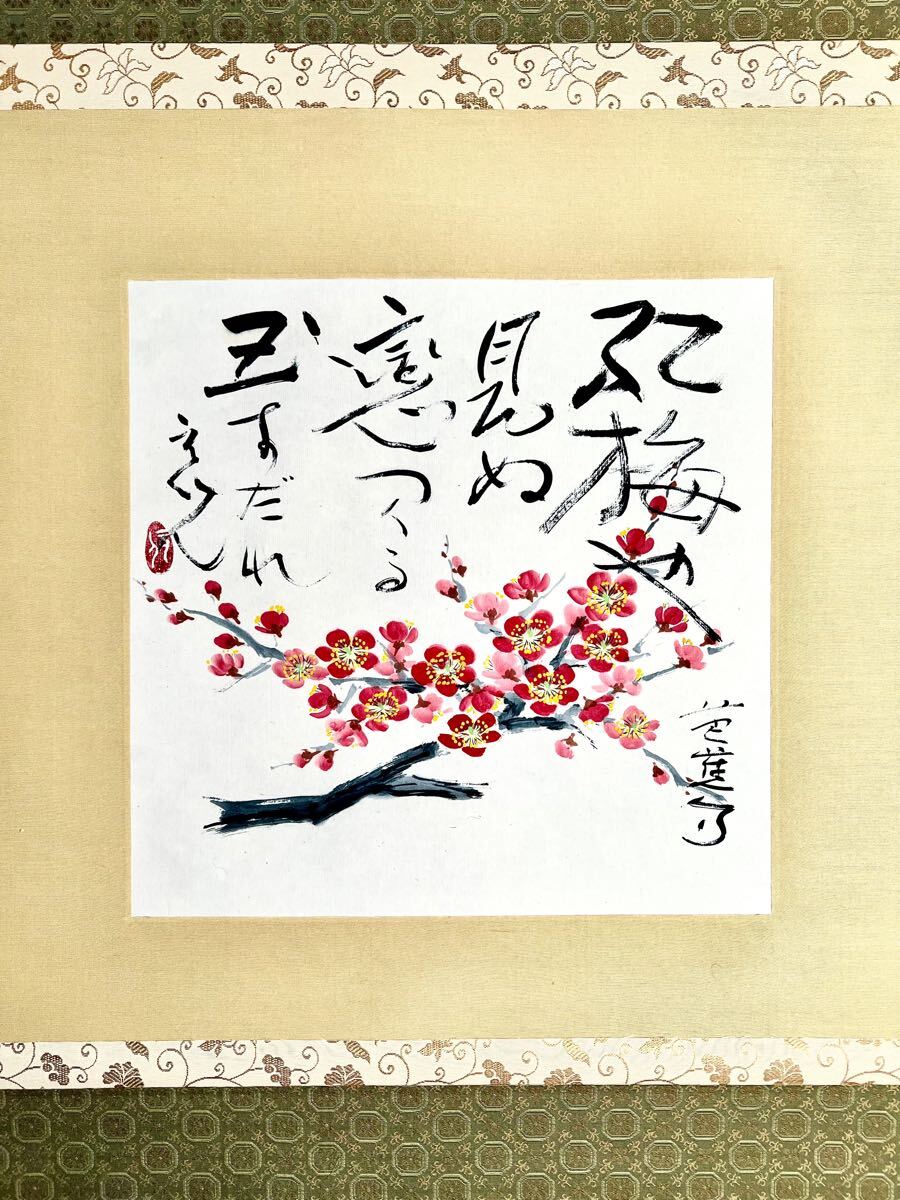 紅梅や
見ぬ
戀つくる
玉すだれ
芭蕉句